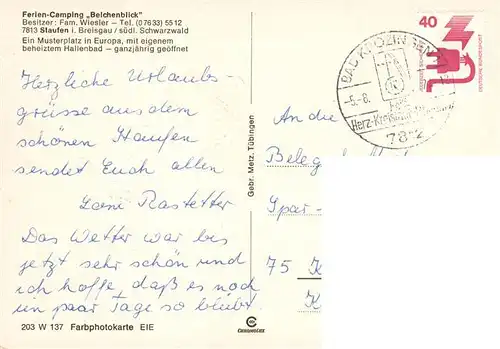 Ferien-Camping „Belchenblick"
Besitzer: Fam. Wiesler – Tel. (07633) 5512
7813 Staufen i. Breisgau / südl. Schwarzwald
Ein Musterplatz in Europa, mit eigenem
beheiztem Hallenbad – ganzjährig geöffnet
Herzliche Urlaubs-
grüsse aus dem
schönen Staufen
sendet Euch allen
Rastetter
Das Wetter war bis
jetzt sehr schön und
ich hoffe, daß es noch
ein paar Tage so bleibt.
203 W 137 Farbphotokarte EIE
Gebr. Metz, Tübingen
CEKADECOLOR
40
DEUTSCHE BUNDESPOST
BAD KROZINGEN
-5.-8.
Herz-Kreislauf
An die
Beleg
Spar-
75 K
K